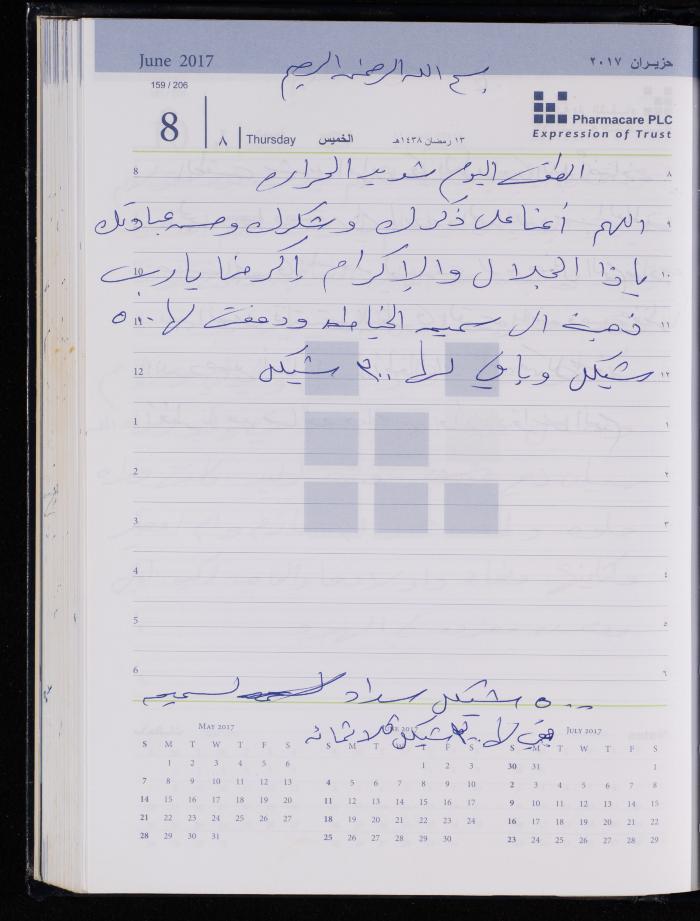 June 2017
حزيـران ٢٠١٧
بسم الله الرحمن الرحيم
159 / 206
8
٨
Thursday
الخميس
١٣ رمضان ١٤٣٨هـ
Pharmacare PLC
Expression of Trust
8 الطقس اليوم شديد الحراره ٨
اللهم أعنا على ذكرك وشكرك وحسن عبادتك ٩
10 ياذا الجلال والإكرام إكرمنا يارب ١٠
11 ذهبت الى سميه الخياطه ودفعت لها ٥٠٠ ١١
12 شيكل وباقي لها ٣٠٠ شيكل ١٢
1 ١
2 ٢
3 ٣
4 ٤
5 ٥
6 ٦
٥٠٠ شيكل سداد لسميه
بقي لها ٣٠٠ شيكل ثلاثمائه
May 2017
S M T W T F S
1 2 3 4 5 6
7 8 9 10 11 12 13
14 15 16 17 18 19 20
21 22 23 24 25 26 27
28 29 30 31
2017
S M T T F S
1 2 3
4 5 6 7 8 9 10
11 12 13 14 15 16 17
18 19 20 21 22 23 24
25 26 27 28 29 30
July 2017
S M T W T F S
30 31 1
2 3 4 5 6 7 8
9 10 11 12 13 14 15
16 17 18 19 20 21 22
23 24 25 26 27 28 29